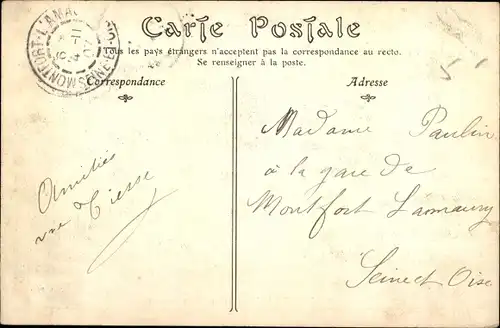 Carte Postale
Tous les pays étrangers n'acceptent pas la correspondance au recto.
Se renseigner à la poste.
Correspondance
Adresse
Amitiés
Madame Paulin
à la gare de
Montfort Lamaury
Seine et Oise